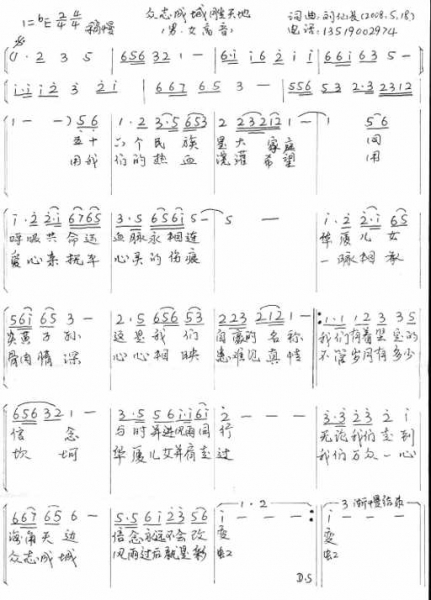 1=♭E 2/4 4/4 稍慢 众志成城 天地 词曲:刘 (2008.5.18)
(男.女高音) 电话:13519002974
(1· 2 3 5 | 656 612 1 — | 6·i i6 2 i i | 66i 63 5 —
1 — —) 56 | 1·2 3·5 653 | 2 232121 — | 1 56
五十 六个民族 是大家庭 同
用我 们的热血 浇灌希望 用
i·2 2·i 6765 | 3·5 656i 5 — | 5 — | i·2 2·i 65
呼吸共命运 血脉永相连 华夏儿女
爱心来抚平 心灵的伤痕 一脉相承
56i 65 3 — | 2·5 656 53 | 223 2121 — | 1·1 12 3 35
炎黄子孙 这是我们 自豪的名称 我们有着坚定的
骨肉情深 心心相映 患难见真情 不管岁月有多少
65632 1 — | 3·5 56i·i6i | 2 — — — | 3·3 23 2 i
信念 与时并进风雨同行 无论我们走到
坎坷 华夏儿女并肩走过 我们万众一心
667 65 6 — | 5·5 6i 23 56 | i — — — | i — — —
1·2 3渐慢结束
海角天边 信念永远不会改 变 变
众志成城 风雨过后就是彩 虹 虹
D.S